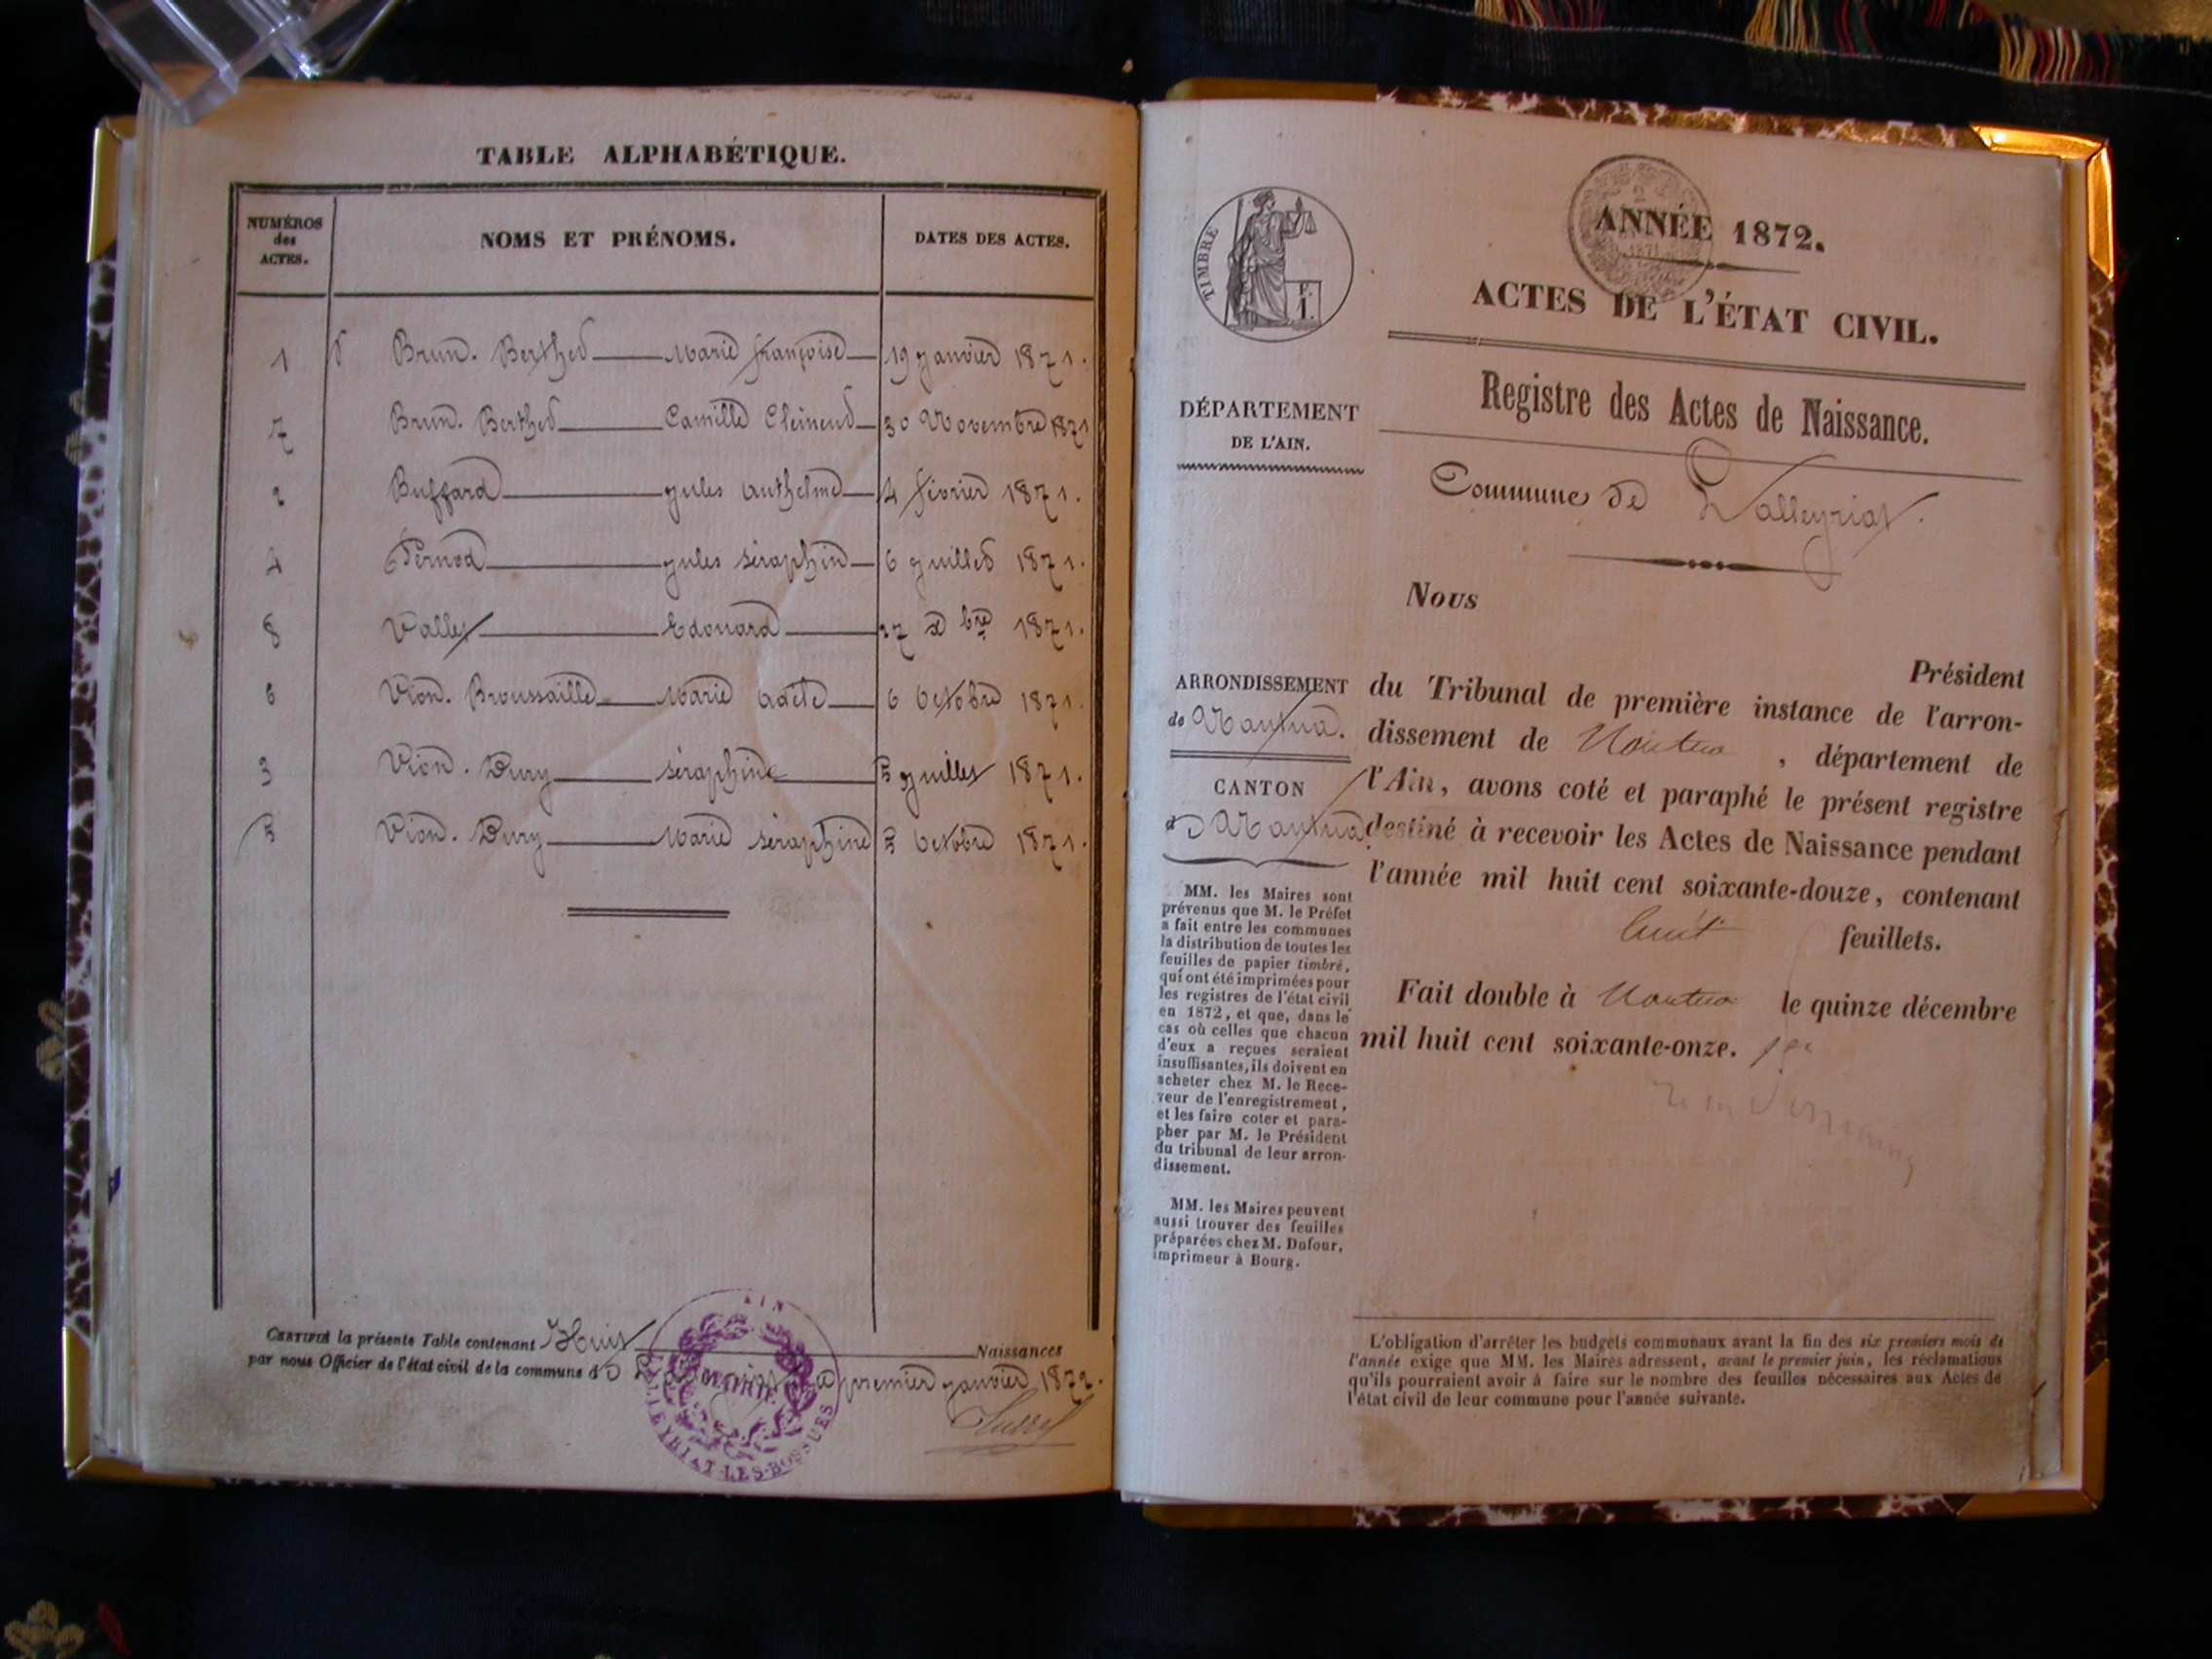 TABLE ALPHABÉTIQUE.
NUMÉROS des ACTES. NOMS ET PRÉNOMS. DATES DES ACTES.
1 Brun. Berthet Marie françoise 19 janvier 1871.
7 Brun. Berthet Camille 30 Novembre 1871
2 Buffard jules anthelme 4 février 1871.
4 Pernod jules séraphin 6 juillet 1871.
8 Vallet Edouard 27 Xbre 1871.
6 Vion. Broussaille Marie Adèle 6 Octobre 1871.
3 Vion. Dury séraphine 5 juillet 1871.
5 Vion. Dury Marie séraphine 5 Octobre 1871.
CERTIFIÉ la présente Table contenant Huit Naissances
par nous Officier de l'état civil de la commune de premier janvier 1872.
AIN
MAIRIE
LALLEYRIAT-LES-BOSSUES
TIMBRE
ANNÉE 1872.
1871
ACTES DE L'ÉTAT CIVIL.
Registre des Actes de Naissance.
DÉPARTEMENT
DE L'AIN.
Commune de Lalleyriat.
Nous
Président
ARRONDISSEMENT
de Nantua.
CANTON
de Nantua.
du Tribunal de première instance de l'arron-
dissement de Nantua, département de
l'Ain, avons coté et paraphé le présent registre
destiné à recevoir les Actes de Naissance pendant
l'année mil huit cent soixante-douze, contenant
huit feuillets.
Fait double à Nantua le quinze décembre
mil huit cent soixante-onze.
MM. les Maires sont
prévenus que M. le Préfet
a fait entre les communes
la distribution de toutes les
feuilles de papier timbré,
qui ont été imprimées pour
les registres de l'état civil
en 1872, et que, dans le
cas où celles que chacun
d'eux a reçues seraient
insuffisantes, ils doivent en
acheter chez M. le Rece-
veur de l'enregistrement,
et les faire coter et para-
pher par M. le Président
du tribunal de leur arron-
dissement.
MM. les Maires peuvent
aussi trouver des feuilles
préparées chez M. Dufour,
imprimeur à Bourg.
L'obligation d'arrêter les budgets communaux avant la fin des six premiers mois de
l'année exige que MM. les Maires adressent, avant le premier juin, les réclamations
qu'ils pourraient avoir à faire sur le nombre des feuilles nécessaires aux Actes de
l'état civil de leur commune pour l'année suivante.